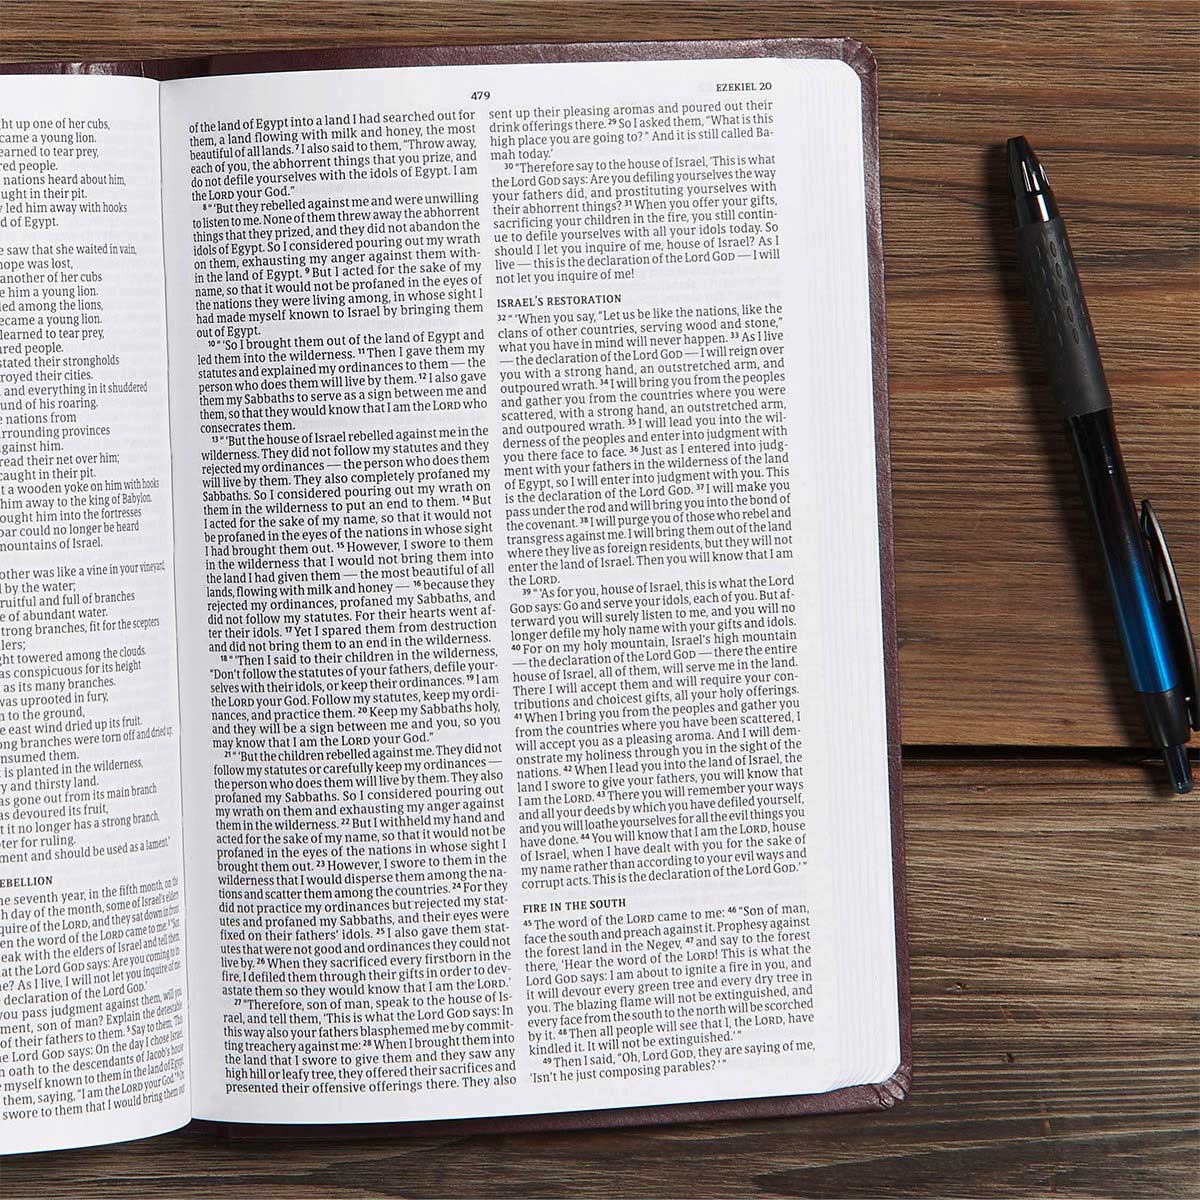 ht up one of her cubs,
came a young lion.
earned to tear prey,
red people.
nations heard about him,
ught in their pit.
led him away with hooks
d of Egypt.
e saw that she waited in vain,
hope was lost,
another of her cubs
e him a young lion.
led among the lions,
ecame a young lion.
learned to tear prey,
ured people.
stated their strongholds
royed their cities.
and everything in it shuddered
und of his roaring.
e nations from
rrounding provinces
gainst him.
read their net over him;
caught in their pit.
t a wooden yoke on him with hooks
him away to the king of Babylon.
ought him into the fortresses
oar could no longer be heard
mountains of Israel.
other was like a vine in your vineyard,
l by the water;
ruitful and full of branches
e of abundant water.
trong branches, fit for the scepters
lers;
ght towered among the clouds.
as conspicuous for its height
as its many branches.
was uprooted in fury,
n to the ground,
e east wind dried up its fruit.
ong branches were torn off and dried up;
nsumed them.
t is planted in the wilderness,
ry and thirsty land.
as gone out from its main branch
as devoured its fruit,
t it no longer has a strong branch,
pter for ruling.
ment and should be used as a lament.”
EBELLION
he seventh year, in the fifth month, on the
h day of the month, some of Israel’s elders
quire of the LORD, and they sat down in front
en the word of the LORD came to me: ³ “Son
eak with the elders of Israel and tell them,
at the Lord GOD says: Are you coming to
e? As I live, I will not let you inquire of me.
declaration of the Lord GOD.’
you pass judgment against them, will you
ment, son of man? Explain the detestable
of their fathers to them. ⁵ Say to them, ‘This
e Lord GOD says: On the day I chose Israel,
n oath to the descendants of Jacob’s house
myself known to them in the land of Egypt.
them, saying, “I am the LORD your God.” ⁶ On
swore to them that I would bring them out
479
EZEKIEL 20
of the land of Egypt into a land I had searched out for
them, a land flowing with milk and honey, the most
beautiful of all lands. ⁷ I also said to them, “Throw away,
each of you, the abhorrent things that you prize, and
do not defile yourselves with the idols of Egypt. I am
the LORD your God.”
⁸ “ ‘But they rebelled against me and were unwilling
to listen to me. None of them threw away the abhorrent
things that they prized, and they did not abandon the
idols of Egypt. So I considered pouring out my wrath
on them, exhausting my anger against them with-
in the land of Egypt. ⁹ But I acted for the sake of my
name, so that it would not be profaned in the eyes of
the nations they were living among, in whose sight I
had made myself known to Israel by bringing them
out of Egypt.
¹⁰ “ ‘So I brought them out of the land of Egypt and
led them into the wilderness. ¹¹ Then I gave them my
statutes and explained my ordinances to them — the
person who does them will live by them. ¹² I also gave
them my Sabbaths to serve as a sign between me and
them, so that they would know that I am the LORD who
consecrates them.
¹³ “ ‘But the house of Israel rebelled against me in the
wilderness. They did not follow my statutes and they
rejected my ordinances — the person who does them
will live by them. They also completely profaned my
Sabbaths. So I considered pouring out my wrath on
them in the wilderness to put an end to them. ¹⁴ But
I acted for the sake of my name, so that it would not
be profaned in the eyes of the nations in whose sight
I had brought them out. ¹⁵ However, I swore to them
in the wilderness that I would not bring them into
the land I had given them — the most beautiful of all
lands, flowing with milk and honey — ¹⁶ because they
rejected my ordinances, profaned my Sabbaths, and
did not follow my statutes. For their hearts went af-
ter their idols. ¹⁷ Yet I spared them from destruction
and did not bring them to an end in the wilderness.
¹⁸ “ ‘Then I said to their children in the wilderness,
“Don’t follow the statutes of your fathers, defile your-
selves with their idols, or keep their ordinances. ¹⁹ I am
the LORD your God. Follow my statutes, keep my ordi-
nances, and practice them. ²⁰ Keep my Sabbaths holy,
and they will be a sign between me and you, so you
may know that I am the LORD your God.”
²¹ “ ‘But the children rebelled against me. They did not
follow my statutes or carefully keep my ordinances —
the person who does them will live by them. They also
profaned my Sabbaths. So I considered pouring out
my wrath on them and exhausting my anger against
them in the wilderness. ²² But I withheld my hand and
acted for the sake of my name, so that it would not be
profaned in the eyes of the nations in whose sight I
brought them out. ²³ However, I swore to them in the
wilderness that I would disperse them among the na-
tions and scatter them among the countries. ²⁴ For they
did not practice my ordinances but rejected my stat-
utes and profaned my Sabbaths, and their eyes were
fixed on their fathers’ idols. ²⁵ I also gave them stat-
utes that were not good and ordinances they could not
live by. ²⁶ When they sacrificed every firstborn in the
fire, I defiled them through their gifts in order to dev-
astate them so they would know that I am the LORD.’
²⁷ “Therefore, son of man, speak to the house of Is-
rael, and tell them, ‘This is what the Lord GOD says: In
this way also your fathers blasphemed me by commit-
ting treachery against me: ²⁸ When I brought them into
the land that I swore to give them and they saw any
high hill or leafy tree, they offered their sacrifices and
presented their offensive offerings there. They also
sent up their pleasing aromas and poured out their
drink offerings there. ²⁹ So I asked them, “What is this
high place you are going to?” And it is still called Ba-
mah today.’
³⁰ “Therefore say to the house of Israel, ‘This is what
the Lord GOD says: Are you defiling yourselves the way
your fathers did, and prostituting yourselves with
their abhorrent things? ³¹ When you offer your gifts,
sacrificing your children in the fire, you still contin-
ue to defile yourselves with all your idols today. So
should I let you inquire of me, house of Israel? As I
live — this is the declaration of the Lord GOD — I will
not let you inquire of me!
ISRAEL’S RESTORATION
³² “ ‘When you say, “Let us be like the nations, like the
clans of other countries, serving wood and stone,”
what you have in mind will never happen. ³³ As I live
— the declaration of the Lord GOD — I will reign over
you with a strong hand, an outstretched arm, and
outpoured wrath. ³⁴ I will bring you from the peoples
and gather you from the countries where you were
scattered, with a strong hand, an outstretched arm,
and outpoured wrath. ³⁵ I will lead you into the wil-
derness of the peoples and enter into judgment with
you there face to face. ³⁶ Just as I entered into judg-
ment with your fathers in the wilderness of the land
of Egypt, so I will enter into judgment with you. This
is the declaration of the Lord GOD. ³⁷ I will make you
pass under the rod and will bring you into the bond of
the covenant. ³⁸ I will purge you of those who rebel and
transgress against me. I will bring them out of the land
where they live as foreign residents, but they will not
enter the land of Israel. Then you will know that I am
the LORD.
³⁹ “ ‘As for you, house of Israel, this is what the Lord
GOD says: Go and serve your idols, each of you. But af-
terward you will surely listen to me, and you will no
longer defile my holy name with your gifts and idols.
⁴⁰ For on my holy mountain, Israel’s high mountain
— the declaration of the Lord GOD — there the entire
house of Israel, all of them, will serve me in the land.
There I will accept them and will require your con-
tributions and choicest gifts, all your holy offerings.
⁴¹ When I bring you from the peoples and gather you
from the countries where you have been scattered, I
will accept you as a pleasing aroma. And I will dem-
onstrate my holiness through you in the sight of the
nations. ⁴² When I lead you into the land of Israel, the
land I swore to give your fathers, you will know that
I am the LORD. ⁴³ There you will remember your ways
and all your deeds by which you have defiled yourself,
and you will loathe yourselves for all the evil things you
have done. ⁴⁴ You will know that I am the LORD, house
of Israel, when I have dealt with you for the sake of
my name rather than according to your evil ways and
corrupt acts. This is the declaration of the Lord GOD.’ ”
FIRE IN THE SOUTH
⁴⁵ The word of the LORD came to me: ⁴⁶ “Son of man,
face the south and preach against it. Prophesy against
the forest land in the Negev, ⁴⁷ and say to the forest
there, ‘Hear the word of the LORD! This is what the
Lord GOD says: I am about to ignite a fire in you, and
it will devour every green tree and every dry tree in
you. The blazing flame will not be extinguished, and
every face from the south to the north will be scorched
by it. ⁴⁸ Then all people will see that I, the LORD, have
kindled it. It will not be extinguished.’ ”
⁴⁹ Then I said, “Oh, Lord GOD, they are saying of me,
‘Isn’t he just composing parables?’ ”